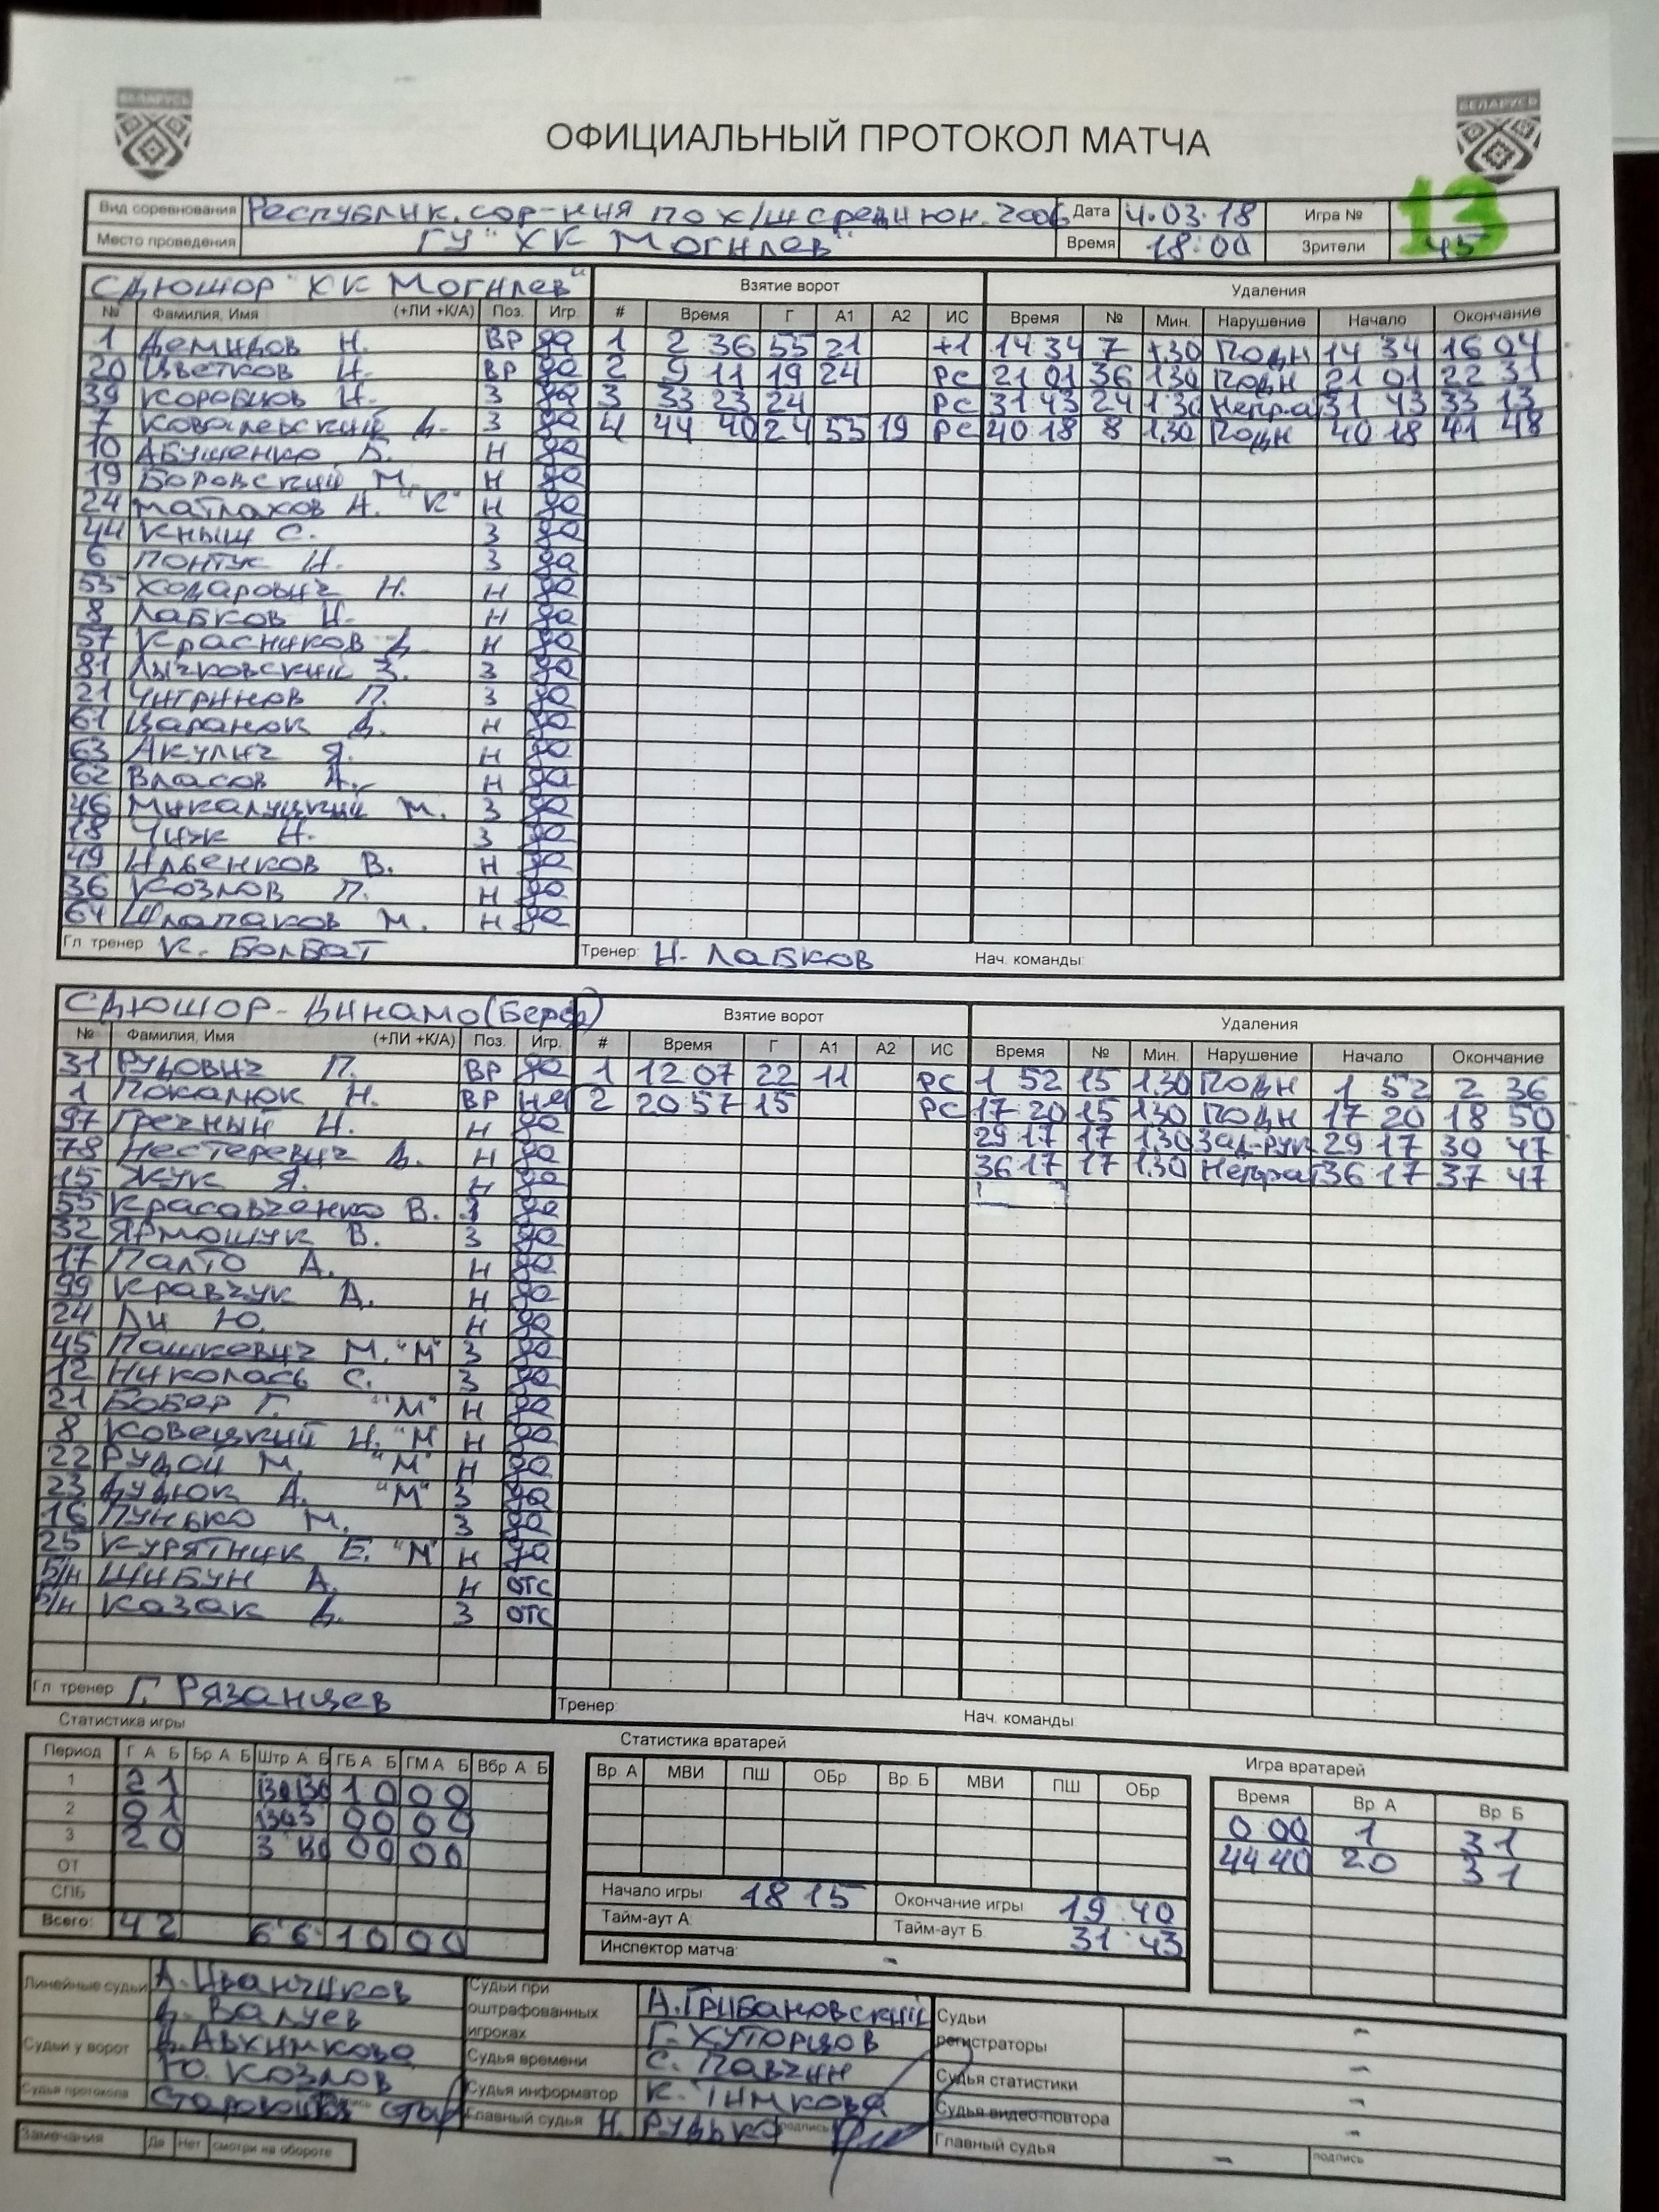 БЕЛАРУСЬ БЕЛАРУСЬ
ОФИЦИАЛЬНЫЙ ПРОТОКОЛ МАТЧА
Вид соревнования Республик. сор-ния по х/ш средн юн. 2006 Дата 4.03.18 Игра № 13
Место проведения ГУ "ХК Могилев" Время 18:00 Зрители 45
СДЮШОР "ХК Могилев" Взятие ворот Удаления
№ Фамилия, Имя (+ЛИ +К/А) Поз. Игр. # Время Г А1 А2 ИС Время № Мин. Нарушение Начало Окончание
1 Демидов И. ВР да 1 2 36 55 21 +1 14 34 7 1.30 Подн 14 34 16 04
20 Цветков И. ВР да 2 9 11 19 24 РС 21 01 36 1.30 Подн 21 01 22 31
39 Коробцов И. З да 3 33 23 24 РС 31 43 24 1.30 Непра 31 43 33 13
7 Ковалевский Д. З да 4 44 40 24 55 19 РС 40 18 8 1.30 Подн 40 18 41 48
10 Абушенко Б. Н да
19 Боровский М. Н да
24 Матлахов А. "К" Н да
44 Кныш С. З да
6 Понтус И. З да
55 Ходарович И. Н да
8 Лабков И. Н да
57 Красников Д. Н да
81 Лычковский З. З да
21 Чигринов П. З да
61 Царанок Д. Н да
63 Акулич Я. Н да
62 Власов А. Н да
46 Микалуцкий М. З да
18 Чиж И. З да
49 Ильенков В. Н да
36 Козлов П. Н да
64 Шлапаков М. Н да
Гл. тренер К. Болбат Тренер: И. Лабков Нач. команды:
СДЮШОР-Динамо Взятие ворот Удаления
№ Фамилия, Имя (+ЛИ +К/А) Поз. Игр. # Время Г А1 А2 ИС Время № Мин. Нарушение Начало Окончание
31 Рудович П. ВР да 1 12 07 22 11 РС 1 52 15 1.30 Подн 1 52 2 36
1 Покалюк И. ВР 2 20 57 15 РС 17 20 15 1.30 Подн 17 20 18 50
97 Гречный И. Н да 29 17 17 1.30 Зад-рук 29 17 30 47
78 Нестеревич Д. Н да 36 17 17 1.30 Непра 36 17 37 47
15 Жук Я. Н да
55 Красавченко В. З да
32 Ярмошук В. З да
17 Палто А. Н да
99 Кравчук А. Н да
24 Ли Ю. Н да
45 Пашкевич М. "М" З да
12 Николась С. З да
21 Бобер Г. "М" Н да
8 Ковецкий И. "М" Н да
22 Рудой М. "М" Н да
23 Дудюк А. "М" З да
16 Пунько М. З да
25 Курятник Е. "М" Н да
Б/Н Шибун А. Н отс
Б/Н Казак Д. З отс
Гл. тренер Г. Рязанцев Тренер: Нач. команды:
Статистика игры Статистика вратарей Игра вратарей
Период Г А Б Бр А Б Штр А Б ГБ А Б ГМ А Б Вбр А Б
1 2 1 130 130 1 0 0 0
2 0 1 0 0 0 0
3 2 0 0 0 0 0
ОТ
СПБ
Всего: 4 2 6 6 1 0 0 0
Вр. А МВИ ПШ ОБр Вр. Б МВИ ПШ ОБр
Начало игры: 18 15 Окончание игры 19 40
Тайм-аут А: Тайм-аут Б: 31 43
Инспектор матча: -
Время Вр. А Вр. Б
0 00 1 31
44 40 20 31
Линейные судьи А. Иванчиков Д. Валуев
Судьи у ворот Д. Авхимкова Ю. Козлов
Судья протокола
Судьи при оштрафованных игроках А. Грибановский Г. Хуторцов
Судья времени С. Павчин
Судья информатор К. Тимкова
Главный судья И. Рудько подпись
Судьи регистраторы -
-
Судья статистики -
Судья видео-повтора -
Главный судья - подпись
Замечания Да Нет смотри на обороте